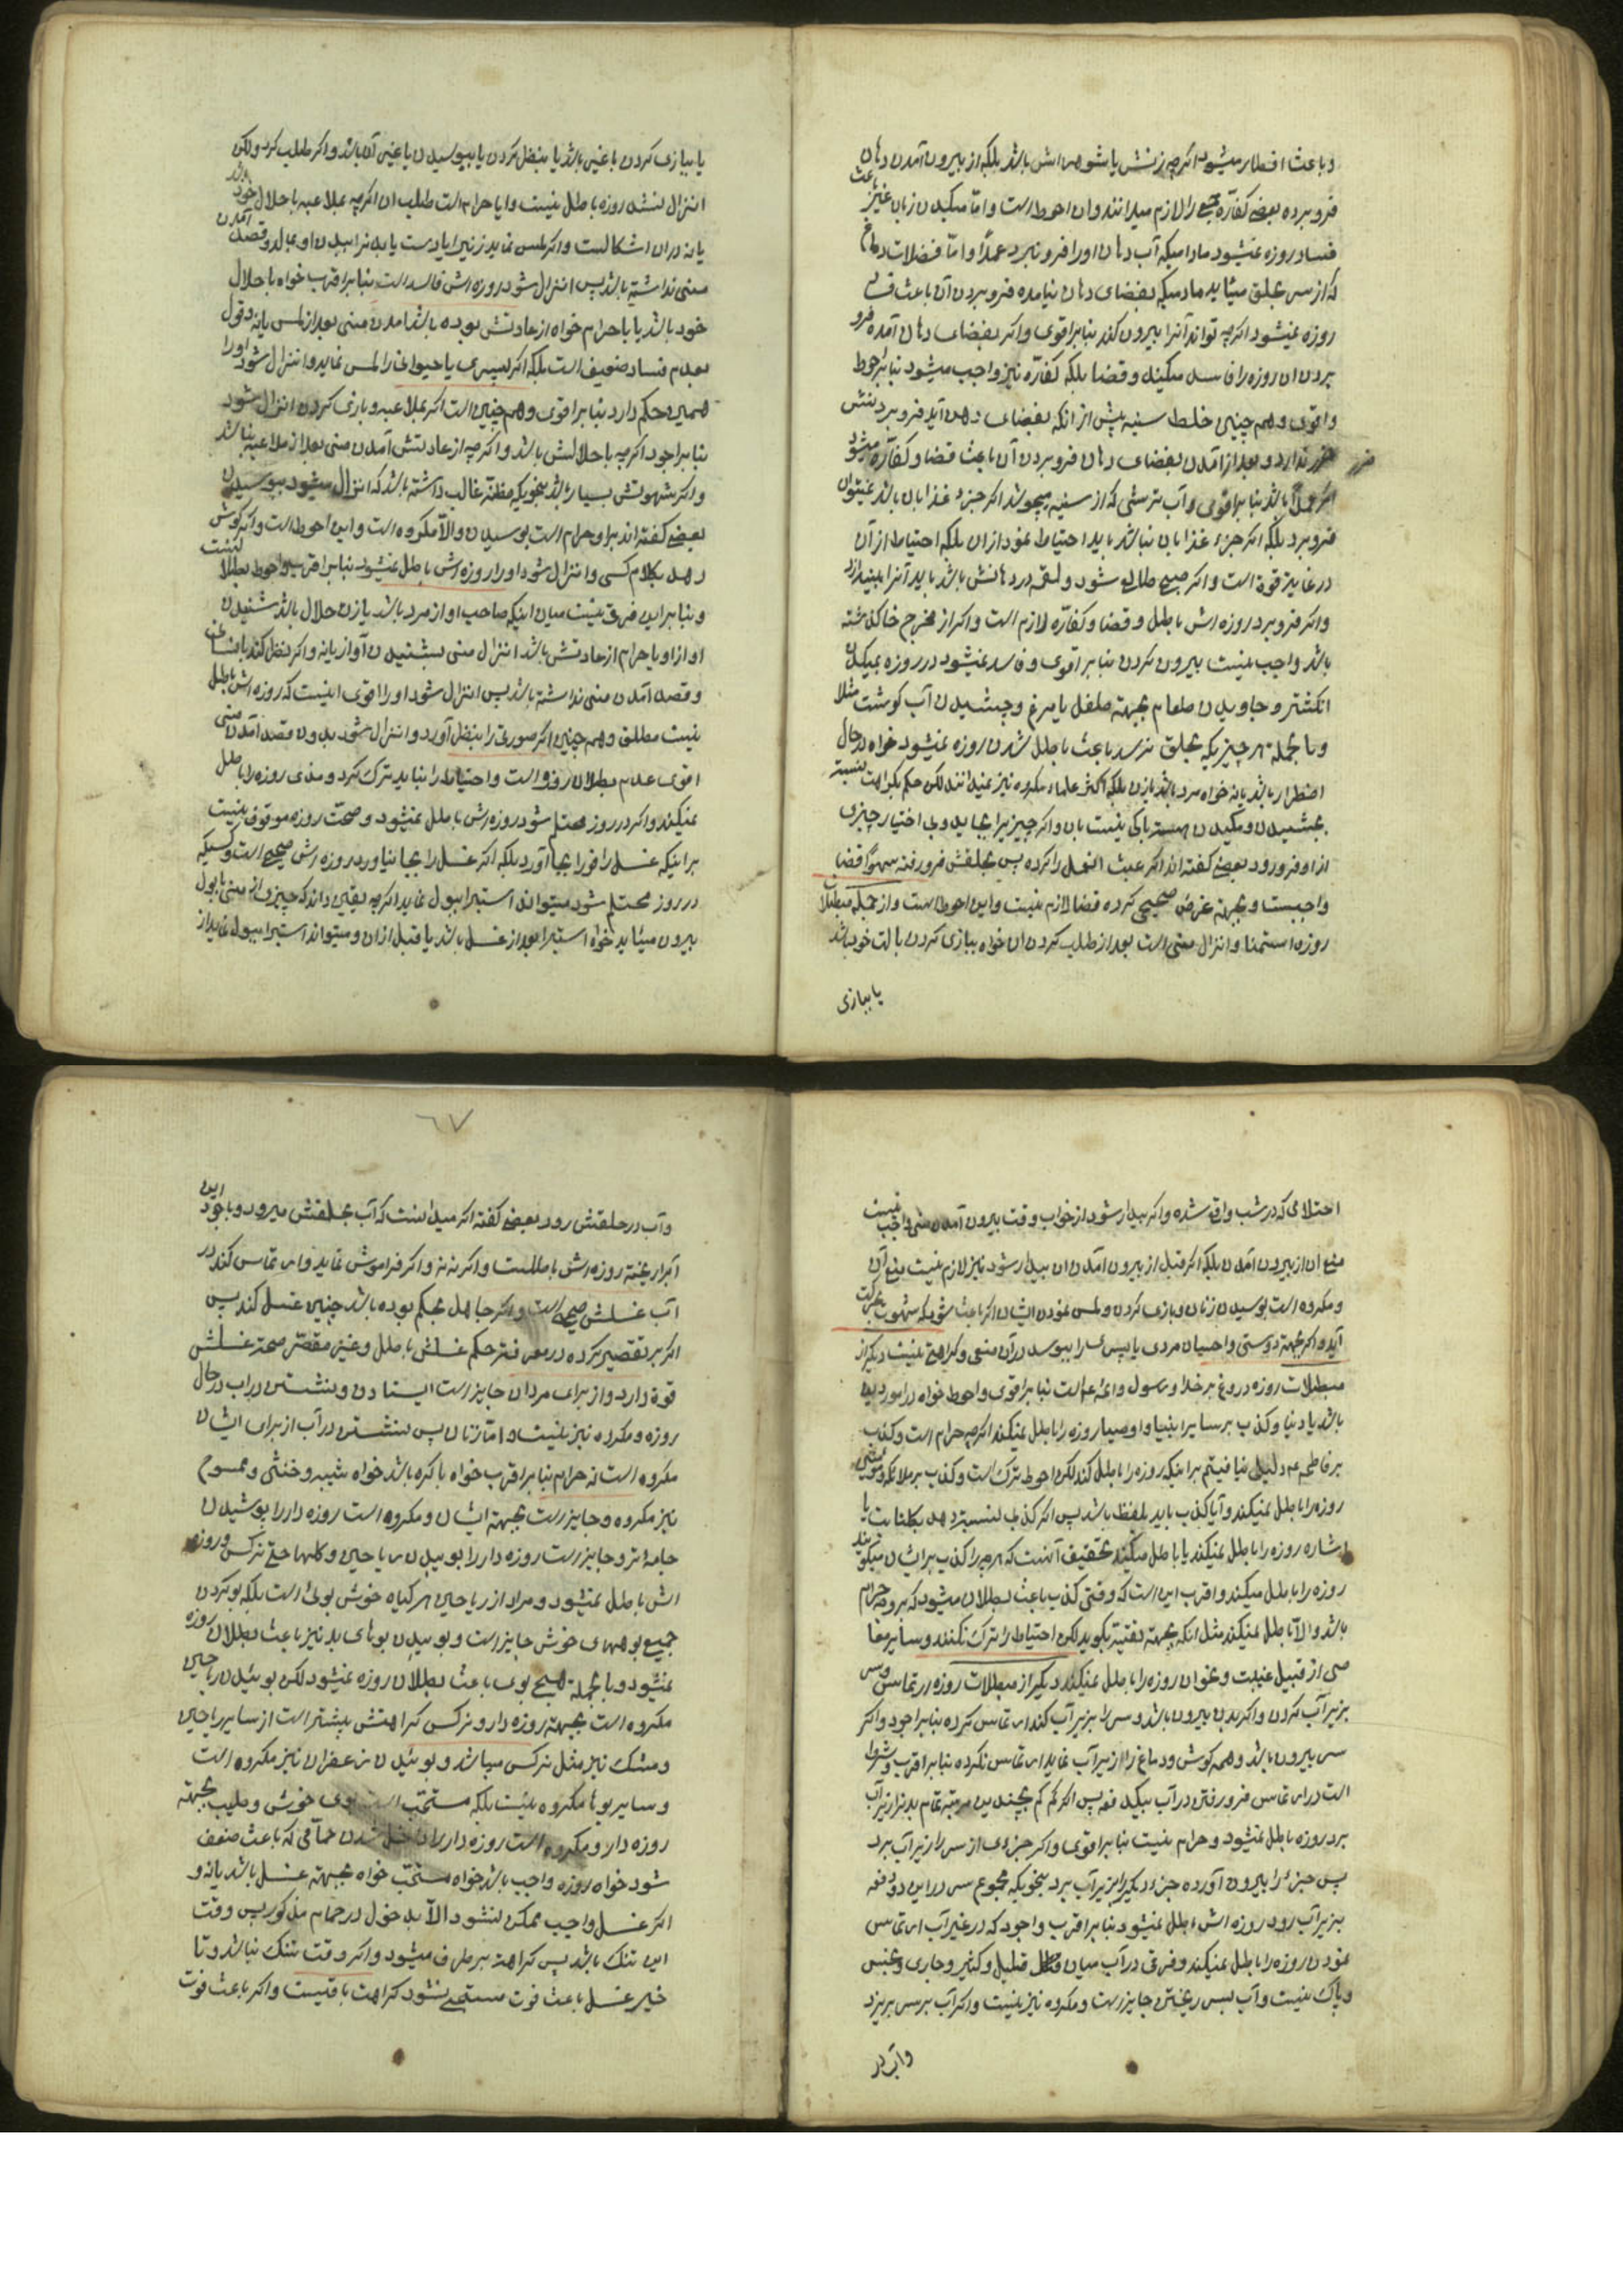 و باعث افطار میشود اکرچه زنش یا شوهرش باشد بلکه از بیرون آمدن دهان
فرو برده بعضی کفاره جمع را لازم میدانند و ان احوط است و اما مکیدن زبان غیر باعث
فساد روزه نمیشود مادامیکه آب دهان او را فرو نبرد عمداً و اما فضلات دماغ
که از سر بحلق میآید مادامیکه بفضای دهان نیامده فرو بردن آن باعث
روزه نمیشود اکرچه تواند آنرا بیرون کند بنابر اقوی و اکر بفضای دهان آمده فرو
بردن ان روزه را فاسد میکند و قضا بلکه کفاره نیز واجب میشود بنابر احوط
و اقوی و همچنین خلط سینه پیش از انکه بفضای دهن آید فرو بردنش
ضرر ندارد و بعد از آمدن بفضای دهان فرو بردن آن باعث قضا و کفاره میشود
اکر عمداً باشد بنابر اقوی و آب ترشی که از سینه میجوشد اکر جزء غذا بان باشد نمیتوان
فرو برد بلکه اکر جزء غذا بان نباشد باید احتیاط نمود ازان بلکه احتیاط از آن
در غایة قوة است و اکر صبح طالع شود و لقمه در دهانش باشد باید آنرا بیندازد
و اکر فرو برد روزه اش باطل و قضا و کفاره لازم است و اکر از مخرج خا کذشته
باشد واجب نیست بیرون کردن بنابر اقوی و فاسد نمیشود در روزه بمکیدن
انکشتر و جاویدن طعام بجهة طفل یا مرغ و چشیدن آب کوشت مثلا
و بالجمله هر چیزیکه بحلق نرسد باعث باطل شدن روزه نمیشود خواه در حال
اضطرار باشد یا نه خواه مرد باشد یا زن بلکه اکثر علماء مکروه نیز نمیدانند لکن حکم بکراهت نسبت
بچشیدن و مکیدن نیست بان و اکر چیزیرا بجاید و بی اختیار چیزی
از او فرو رود بعضی کفته اند اکر عبث انعمل را کرده پس بحلقش فرو رفته سهواً قضا
واجبست و بجهة غرض صحیحی کرده قضا لازم نیست و این احوط است و از جمله مبطلات
روزه استمنا و انزال منی است بعد از طلب کردن ان خواه ببازی کردن با الت خود باشد
یا ببازی
یا ببازی کردن با غیر باشد یا بنظر کردن یا ببوسیدن یا غیر آن باشد و اکر طلب کرد ولکن
انزال نشد روزه باطل نیست و ایا حرام است طلب ان اکرچه بملاعبه با حلال خود باشد
یا نه دران اشکالست و اکر لمس نماید زنیرا یا دست یا بدن را بدن او بمالد و قصد آمدن
منی نداشته باشد پس انزال شود روزه اش فاسد است بنابر اقرب خواه با حلال
خود باشد یا با حرام خواه از عادتش بوده باشد آمدن منی بعد از لمس یا نه و قول
بعدم فساد ضعیف است بلکه اکر پسری یا حیوانی را لمس نماید و انزال شود او را
همین حکم دارد بنابر اقوی و همچنین است اکر بملاعبه و بازی کردن انزال شود
بنابر اجود اکرچه با حلالش باشد و اکرچه از عادتش آمدن منی بعد از ملاعبه نباشد
و اکر شهوتش بسیار باشد بنحویکه مظنه غالب داشته باشد که انزال میشود ببوسیدن
بعضی کفته اند بر او حرام است بوسیدن و الا مکروه است و این احوط است و اکر کوش
دهد بکلام کسی و انزال شود او را روزه اش باطل نمیشود بنابر اقرب
و بنابراین فرق نیست میان اینکه صاحب اواز مرد باشد یا زن حلال باشد شنیدن
اواز او یا حرام از عادتش باشد انزال منی بشنیدن آواز یا نه و اکر نظر کند
و قصد آمدن منی نداشته باشد پس انزال شود او را اقوی اینست که روزه اش باطل
نیست مطلق و همچنین اکر صورتی را بنظر آورد و انزال شود بدون قصد آمدن منی
اقوی عدم بطلان روزه است و احتیاط را نباید ترک کرد و مذی روزه را باطل
نمیکند و اکر در روز محتلم شود روزه اش باطل نمیشود و صحت روزه موقوف نیست
بر اینکه غسل را فوراً بجا آورد بلکه اکر غسل را بجا نیاورد روزه اش صحیح است و کسیکه
در روز محتلم شود میتواند استبرا ببول نماید اکرچه یقین داند که چیزی از منی با بول
بیرون میآید خواه استبرا بعد از غسل باشد یا قبل ازان و میتواند استبرا ببول نماید از
احتلامی که در شب واقع شده و اکر بیدار شود از خواب وقت بیرون آمدن منی واجب نیست
منع ان از بیرون آمدن بلکه اکر قبل از بیرون آمدن ان بیدار شود نیز لازم نیست منع آن
و مکروه است بوسیدن زنان و بازی کردن و لمس نمودن ایشان اکر باعث شود که شهوت بحرکت
آید و اکر بجهة دوستی و احسان مردی یا پسری را ببوسد دران منعی و کراهتی نیست دیکر از
مبطلات روزه دروغ بر خدا و رسول و ائمه است بنابر اقوی و احوط خواه در امور دین
باشد یا دنیا و کذب بر سایر انبیا و اوصیا روزه را باطل نمیکند اکرچه حرام است و کذب
بر فاطمه ع م دلیلی نیافتیم بر اینکه روزه را باطل کند لکن احوط ترک است و کذب بر ملائکه و
روزه را باطل نمیکند و آیا کذب باید بلفظ باشد پس اکر کذب نسبت دهد بکتابت یا
اشاره روزه را باطل نمیکند یا باطل میکند تحقیق آنست که هرچه را کذب بر ایشان میکویند
روزه را باطل میکند و اقرب این است که وقتی کذب باعث بطلان میشود که بر وجه حرام
باشد و الا باطل نمیکند مثل انکه بجهة تقیه بکوید لکن احتیاط را ترک نکنند و سایر معا
صی از قبیل غیبت و نحو ان روزه را باطل نمیکند دیکر از مبطلات روزه ارتماس و سر
بزیر آب کردن و اکر بدن بیرون باشد و سر را بزیر آب کند ارتماس کرده بنابر اجود و اکر
سر بیرون باشد و همه کوش و دماغ را از زیر آب نماید ارتماس نکرده بنابر اقرب و شرط
است در ارتماس فرو رفتن در آب بیکدفعه پس اکر کم کم بچندین مرتبه تمام بدن را زیر آب
برد روزه باطل نمیشود و حرام نیست بنابر اقوی و اکر جزوی از سر را زیر آب برد
پس جزء را بیرون آورده جزء دیکر را بزیر آب برد بنحویکه مجموع سر در این دو دفعه
بزیر آب رود روزه اش باطل نمیشود بنابر اقرب و اجود که در غیر آب ارتماس
نمودن روزه را باطل نمیکند و فرقی در آب میان قلیل و کثیر و جاری و نجس
و پاک نیست و آب بسر ریختن جایز است و مکروه نیز نیست و اکر آب بر سر بریزد
و آب در
٦٧
و آب در حلقش رود بعضی کفته اکر میدانست که آب بحلقش میرود و با وجود این
آبرا ریخته روزه اش باطلست و اکر نه نه و اکر فراموش نماید و ارتماس کند در
آب غسلش صحیح است و اکر جاهل بحکم بوده باشد چنین غسل کند پس
اکر بر تقصیر کرده در معرفت حکم غسلش باطل و غیر مقصر صحة غسلش
قوة دارد و از برای مردان جایز است ایستادن و نشستن در اب در حال
روزه و مکروه نیز نیست و اما زنان پس نشستن در آب از برای ایشان
مکروه است نه حرام بنابر اقرب خواه باکره باشد خواه ثیبه و خنثی و ممسوح
نیز مکروه و جایز است بجهة ایشان و مکروه است روزه دار را پوشیدن
جامه تر و جایز است روزه دار را بوییدن ریاحین و کلها حتی نرکس و روزه
اش باطل نمیشود و مراد از ریاحین هر کیاه خوش بوئی است بلکه بو کردن
جمیع بوهای خوش جایز است و بوییدن بوهای بد نیز باعث بطلان روزه
نمیشود و بالجمله هیچ بوی باعث بطلان روزه نمیشود لکن بوئیدن ریاحین
مکروه است بجهة روزه دار و نرکس کراهتش بیشتر است از سایر ریاحین
و مشک نیز مثل نرکس میباشد و بوئیدن زعفران نیز مکروه است
و سایر بوها مکروه نیست بلکه مستحب است بوی خوش و طیب بجهة
روزه دار و مکروه است روزه دار را داخل شدن حمامی که باعث ضعف
شود خواه روزه واجب باشد خواه مستحب خواه بجهة غسل باشد یا نه و
اکر غسل واجب ممکن نشود الا بدخول در حمام مذکور پس وقت
این تنک باشد پس کراهت بر طرف میشود و اکر وقت تنک نباشد و تا
خیر غسل باعث فوت مستحبی نشود کراهت باقیست و اکر باعث فوت